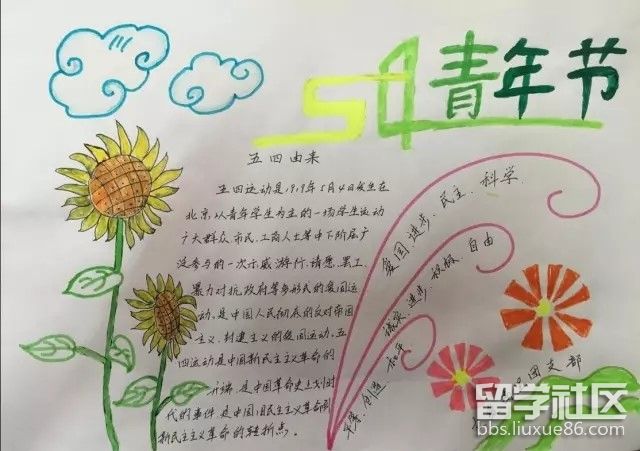 54青年节
五四由来
五四运动是1919年5月4日发生在
北京,以青年学生为主的一场学生运动
广大群众、市民、工商人士等中下阶层广
泛参与的一次示威游行、请愿、罢工、
暴力对抗政府等多形式的爱国运
动,是中国人民彻底的反对帝国
主义、封建主义的爱国运动,五
四运动是中国新民主主义革命的
开端,是中国革命史上划时
代的事件,是中国旧民主主义革命到
新民主主义革命的转折点。
爱国、进步、民主、科学
诚实、进步、积极、自由
创造 和平
团支部
留学社区
bbs.liuxue86.com